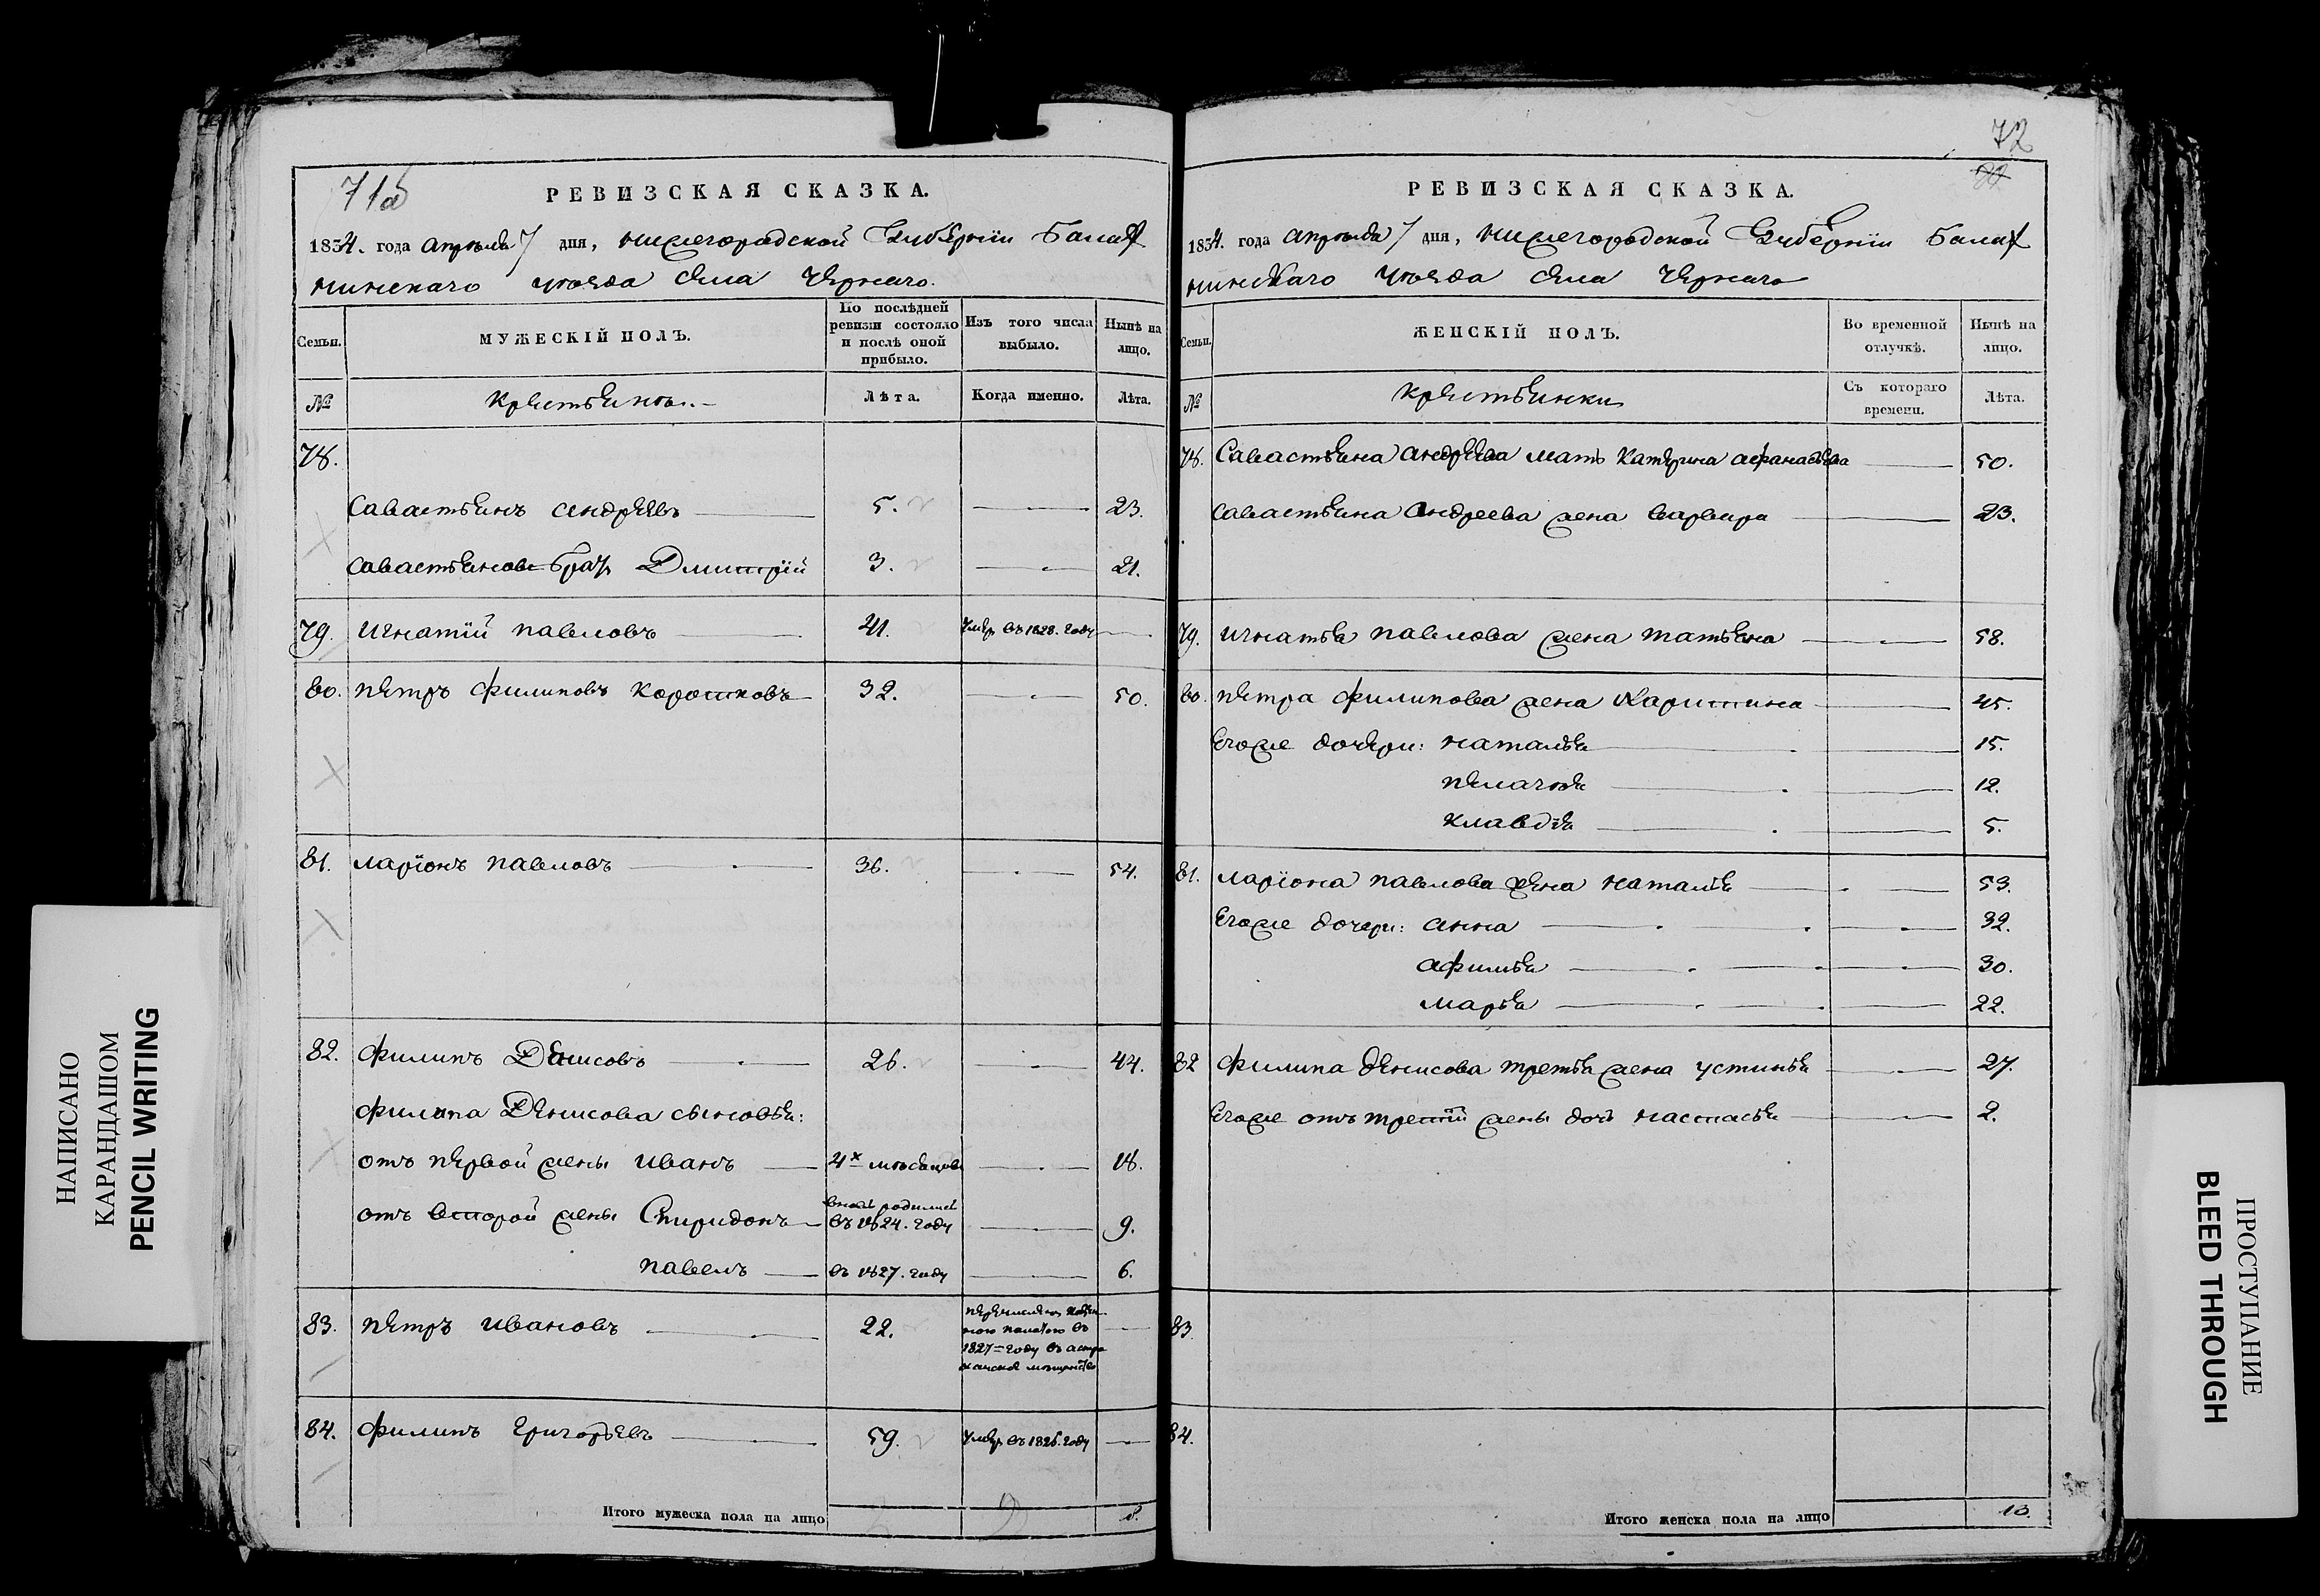 71об
РЕВИЗСКАЯ СКАЗКА.
1834. года апреля 7 дня, Нижегородской Губернии Балах
нинскаго уезда села Чернаго.
Семьи.
МУЖЕСКІЙ ПОЛЪ.
По послѣдней ревизіи состояло и послѣ оной прибыло.
Изъ того числа выбыло.
Нынѣ на лицо.
№
Крестьянъ.
Лѣта.
Когда именно.
Лѣта.
78.
Савастьянъ Андреевъ 5. 23.
Савастьяновъ братъ Дмитрій 3. 21.
79. Игнатій Павловъ 41. умер въ 1828. году
80. Петръ Филиповъ Коротковъ 32. 50.
81. Ларіонъ Павловъ 36. 54.
82. Филипъ Денисовъ 26. 44.
Филипа Денисова сыновья:
отъ первой жены Иванъ 4х месяцовъ 18.
отъ второй жены Спиридонъ вновь родился въ 1824. году 9.
Павелъ въ 1827. году 6.
83. Петръ Ивановъ 22. перечисленъ казенною палатою въ 1827 = году въ астраханское мещанство
84. Филипъ Григорьевъ 59. умер въ 1826. году
Итого мужеска пола на лицо 8.
72
РЕВИЗСКАЯ СКАЗКА.
1834. года апреля 7 дня, Нижегородской Губерніи Балах
нинскаго уезда села Чернаго
Семьи.
ЖЕНСКІЙ ПОЛЪ.
Во временной отлучкѣ.
Нынѣ на лицо.
№
Крестьянки
Съ котораго времени.
Лѣта.
78. Савастьяна Андреева мать Катерина Афанасьева 50.
Савастьяна Андреева жена Варвара 23.
79. Игнатья Павлова жена Татьяна 58.
80. Петра Филипова жена Харитина 45.
Егоже дочери: Наталья 15.
Пелагея 12.
Клавдія 5.
81. Ларіона Павлова жена Наталья 53.
Егоже дочери: Анна 32.
Афимья 30.
Марья 22.
82 Филипа Денисова третья жена Устинья 27.
Егоже отъ третій жены дочь Настасья 2.
83.
84.
Итого женска пола на лицо 13.
НАПИСАНО
КАРАНДАШОМ
PENCIL WRITING
ПРОСТУПАНИЕ
BLEED THROUGH